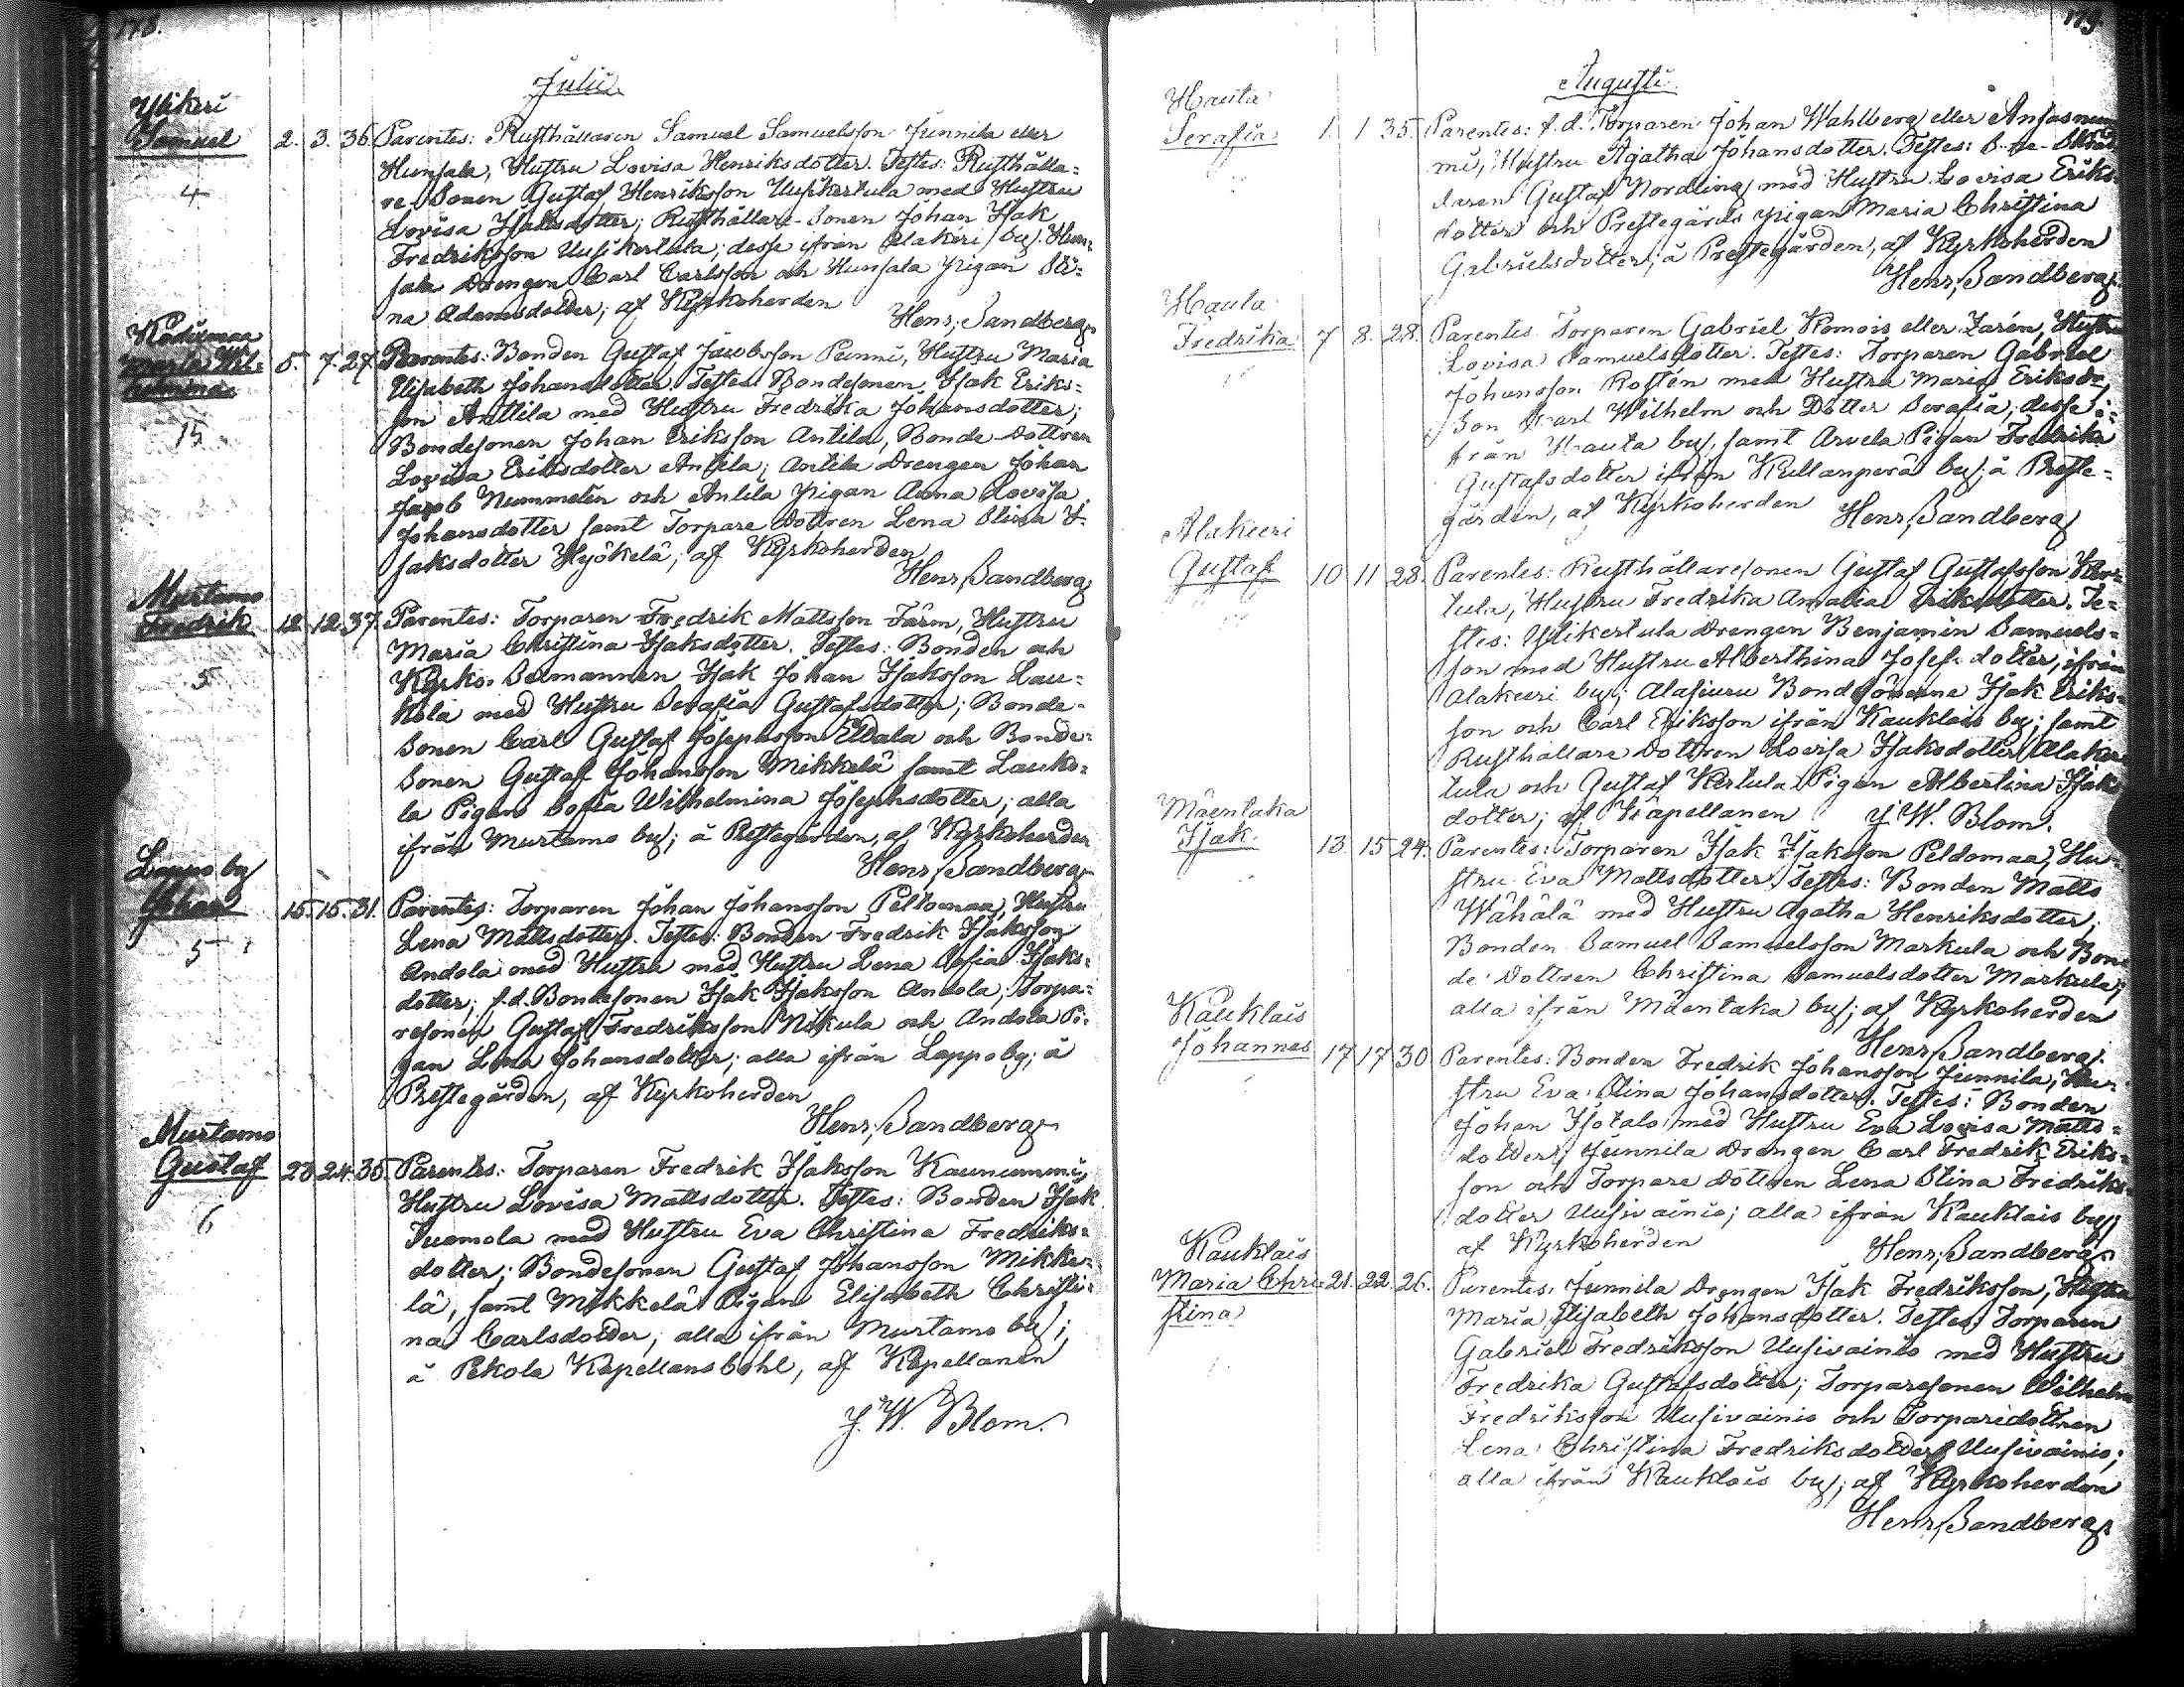 178.
Julii
Ylikeri
Samuel 2. 3. 36. Parentes: Rusthållaren Samuel Samuelsson Junnila eller
Hunsala, Hustru Lovisa Henriksdotter. Testes: Rusthålla-
4
re-Sonen Gustaf Henriksson Uusikertula med Hustru
Lovisa Isaksdotter; Rusthållare-Sonen Johan Isak
Fredriksson Uusikertula; desse ifrån Alakeri by; Hun-
sala Drengen Carl Carlsson och Hunsala Pigan Sti-
na Adamsdotter; af Kyrkoherden
Henr. Sandberg
Kodiumaa
Maria Wil- 5. 7. 27. Parentes: Bonden Gustaf Jacobsson Punni, Hustru Maria
helmina
Elisabeth Johansdotter. Testes: Bondesonen Isak Eriks-
son Anttila med Hustru Fredrika Johansdotter;
15
Bondesonen Johan Eriksson Antila, Bonde-Dottren
Lovisa Eriksdotter Antila; Antila Drengen Johan
Jacob Nummelin och Antila Pigan Anna Lovisa
Johansdotter samt Torpare Dottren Lena Stina I-
saksdotter Hyökelä; af Kyrkoherden
Henr. Sandberg
Murtamo
Fredrik 12. 12. 37. Parentes: Torparen Fredrik Mattsson Färm, Hustru
Maria Christina Isaksdotter. Testes: Bonden och
5
Kyrko-Sexmannen Isak Johan Isaksson Lau-
kola med Hustru Serafia Gustafsdotter; Bonde-
Sonen Carl Gustaf Josephsson Eldala och Bonde-
Sonen Gustaf Johansson Mikkelä samt Lauko-
la Pigan Sofia Wilhelmina Josephsdotter; alla
ifrån Murtamo by; å Prestegården, af Kyrkoherden
Henr. Sandberg
Lappo by
Johan 15. 15. 31. Parentes: Torparen Johan Johansson Peldomaa, Hustru
Lena Mattsdotter. Testes: Bonden Fredrik Isaksson
5
Andola med Hustru med Hustru Lena Sofia Isaks-
dotter; f.d. Bondesonen Isak Isaksson Andola; Torpa-
resonen Gustaf Fredriksson Nikula och Andola Pi-
gan Lena Johansdotter; alla ifrån Lappo by; å
Prestegården, af Kyrkoherden
Henr. Sandberg
Murtamo
Gustaf 23. 24. 35. Parentes: Torparen Fredrik Isaksson Kaunummi,
Hustru Lovisa Mattsdotter. Testes: Bonden Isak
6
Tuomola med Hustru Eva Christina Fredriks-
dotter; Bondesonen Gustaf Johansson Mikke-
lä, samt Mikkelä Pigan Elisabeth Christi-
na Carlsdotter; alla ifrån Murtamo by;
å Pekola Kapellansbohl, af Kapellanen
J. W. Blom.
179.
Augusti
Hauta
Serafia 1. 1. 35. Parentes: f.d. Torparen Johan Wahlberg eller Ansasnum-
mi, Hustru Agatha Johansdotter. Testes:
daren Gustaf Nordling med Hustru Lovisa Eriks-
dotter och Prestegårds pigan Maria Christina
Gabrielsdotter; å Prestegården, af Kyrkoherden
Henr. Sandberg
Hauta
Fredrika 7. 8. 28. Parentes: Torparen Gabriel Komois eller Zarén, Hustru
Lovisa Samuelsdotter. Testes: Torparen Gabriel
Johansson Rosten med Hustru Maria Eriksdr,
Son Karl Wilhelm och Dotter Serafia, desse i-
från Hauta by, samt Arvela Pigan Fredrika
Gustafsdotter ifrån Kullanperä by; å Preste-
gården, af Kyrkoherden Henr. Sandberg
Alakeeri
Gustaf 10 11 28. Parentes: Rusthållaresonen Gustaf Gustafsson Ker-
tula, Hustru Fredrika Amalia Eriksdotter. Te-
stes: Ylikertula Drengen Benjamin Samuels-
son med Hustru Alberthina Josefsdotter, ifrån
Alakeeri by; Alasiuru Bondesönerne Isak Eriks-
son och Carl Eriksson ifrån Kauklais by; samt
Rusthållare Dottren Lovisa Isaksdotter Alaker-
tula och Gustaf Kertula Pigan Albertina Isaks-
dotter; af Kapellanen J. W. Blom.
Mäentaka
Isak 13. 15 24. Parentes: Torparen Isak Isaksson Peldomaa, Hu-
stru Eva Mattsdotter. Testes: Bonden Matts
Wähälä med Hustru Agatha Henriksdotter;
Bonden Samuel Samuelsson Markula och Bon-
de Dottren Christina Samuelsdotter Markula;
alla ifrån Mäentaka by; af Kyrkoherden
Henr. Sandberg
Kauklais
Johannes 17 17 30 Parentes: Bonden Fredrik Johansson Junnila, Hu-
stru Eva Stina Johansdotter. Testes: Bonden
Johan Isotalo med Hustru Eva Lovisa Matts-
dotter; Junnila Drengen Carl Fredrik Eriks-
son och Torpare Dottren Lena Stina Fredriks-
dotter Uusivainio; alla ifrån Kauklais by;
af Kyrkoherden Henr. Sandberg
Kauklais
Maria Chri- 21. 22 26. Parentes: Junnila Drengen Isak Fredriksson, Hustru
stina
Maria Elisabeth Johansdotter. Testes: Torparen
Gabriel Fredriksson Uusivainio med Hustru
Fredrika Gustafsdotter; Torparesonen Wilhelm
Fredriksson Uusivainio och Torparedottren
Lena Christina Fredriksdotter Uusivainio;
alla ifrån Kauklais by; af Kyrkoherden
Henr. Sandberg